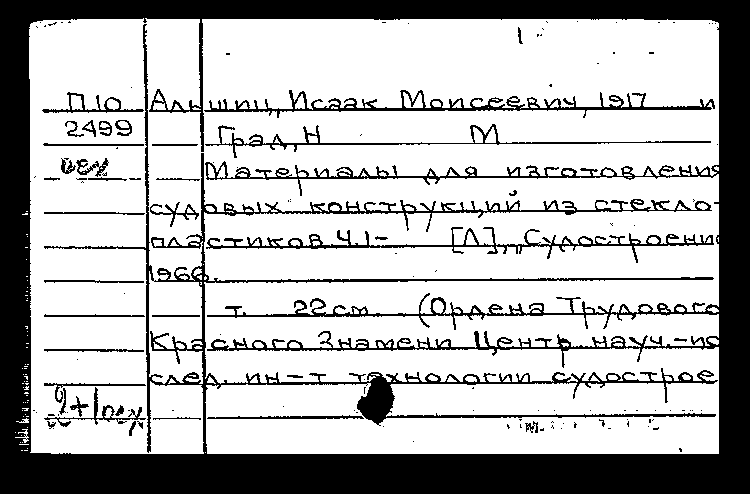 1
П10 Альшиц, Исаак Моисеевич, 1917 и
2499 Град, Н М
Материалы для изготовления
судовых конструкций из стекло-
пластиков. Ч.1- [Л], „Судостроение
1966.
т. 22см. (Ордена Трудового
Красного Знамени Центр. науч.-ис
след. ин-т технологии судострое
2+1